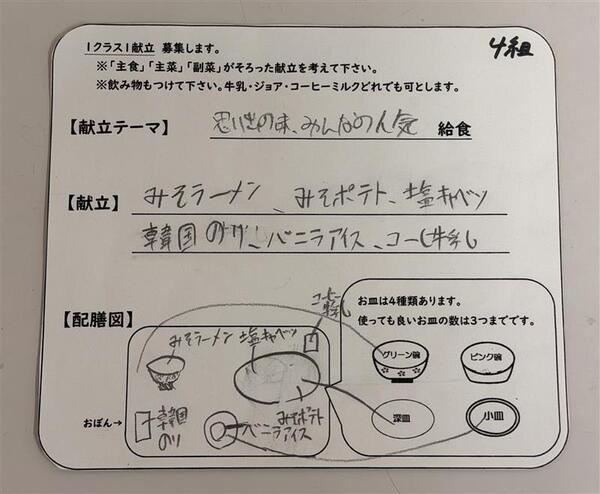 4組
1クラス1献立 募集します。
※「主食」「主菜」「副菜」がそろった献立を考えて下さい。
※飲み物もつけて下さい。牛乳・ジョア・コーヒーミルクどれでも可とします。
【献立テーマ】 思い出の味、みんなの人気 給食
【献立】 みそラーメン、みそポテト、塩キャベツ
韓国のり、バニラアイス、コーヒー牛乳
【配膳図】
コーヒー牛乳
みそラーメン 塩キャベツ
おぼん→
韓国のり
バニラアイス
みそポテト
お皿は4種類あります。
使っても良いお皿の数は3つまでです。
グリーン碗 ピンク碗
深皿 小皿